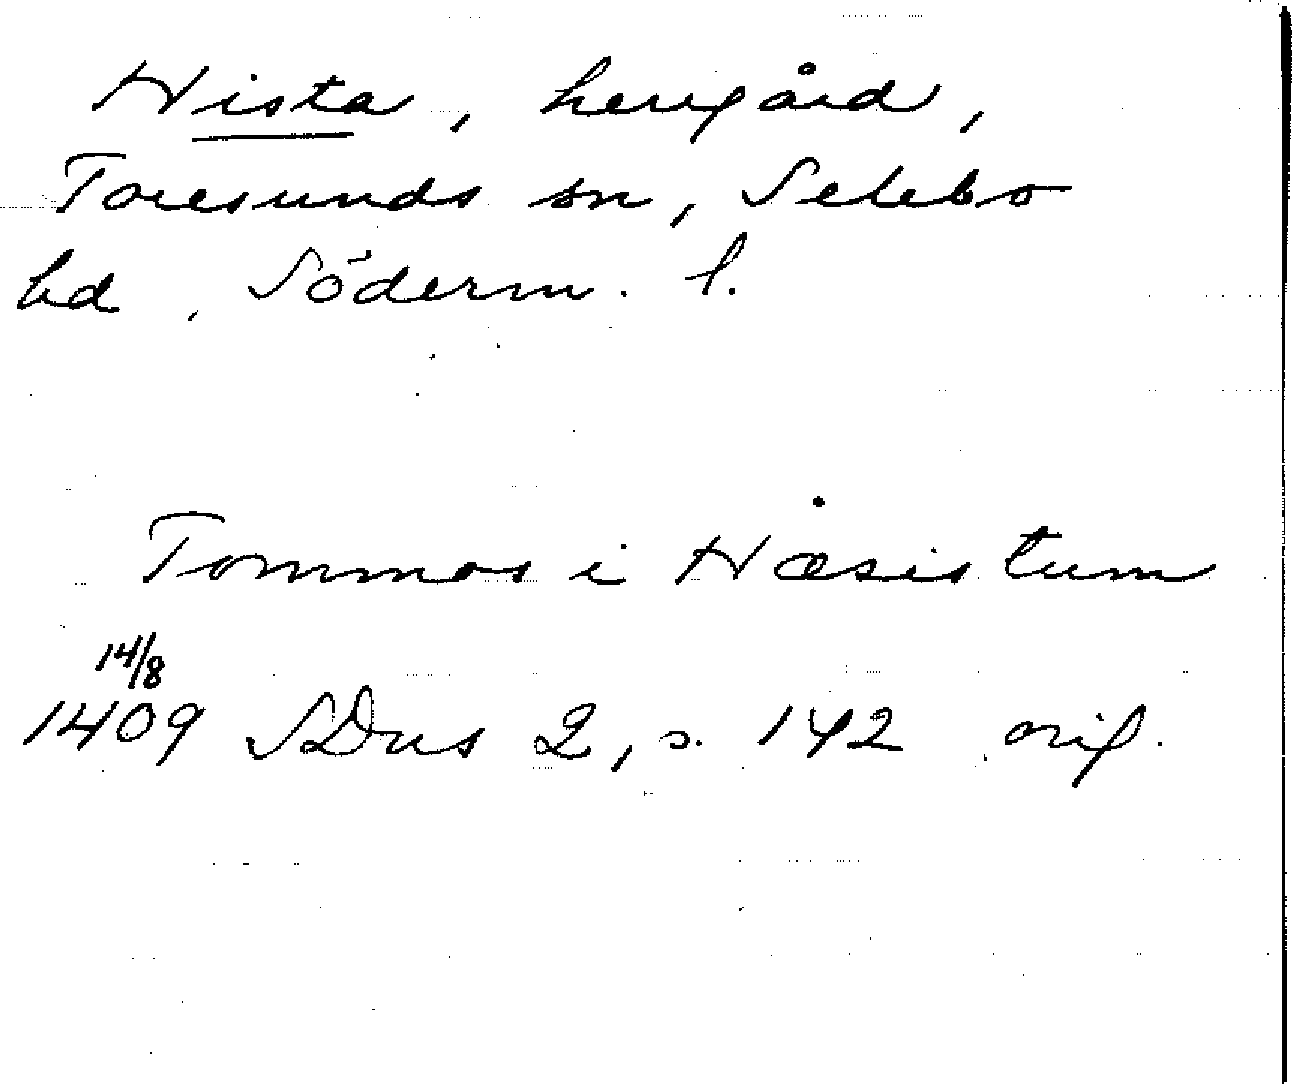 Hista, herrgård,
Toresunds sn, Selebo
hd, Söderm. l.
Tommos i Hæsistum
14/8
1409 SDns 2, s. 142 orig.